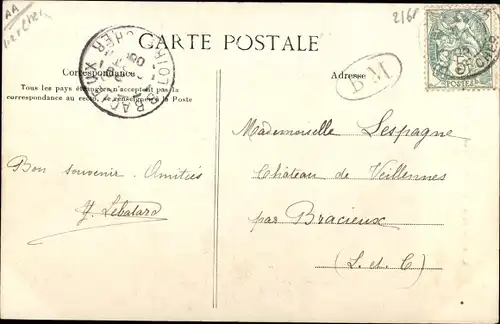 AA
2161
CARTE POSTALE
Correspondance
Tous les pays étrangers n'acceptent pas la
correspondance au recto, se renseigner à la Poste
BRACIEUX
LOIR-&-CHER
Adresse
BM
POSTES
Mademoiselle Lespagne
Château de Veillennes
par Bracieux
(L. et C)
Bon souvenir. Amitiés
Y. Lebatard